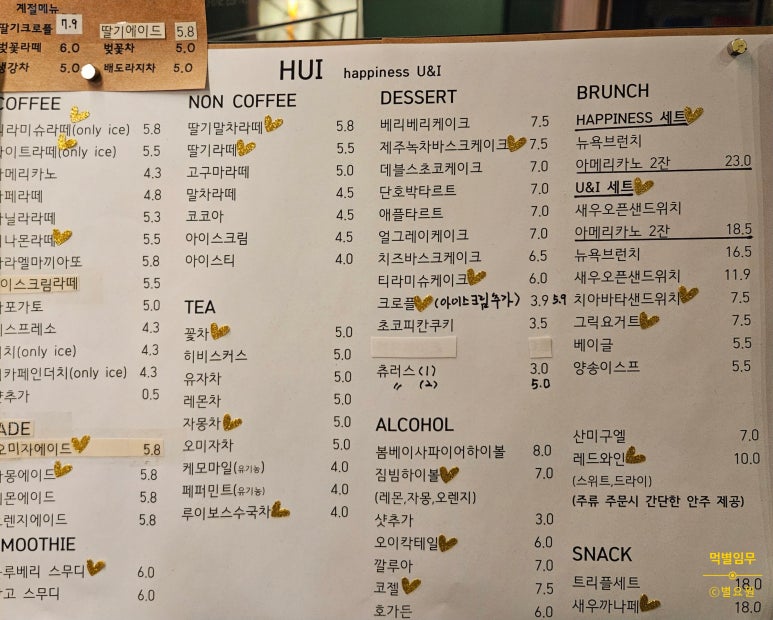 계절메뉴
딸기크로플 7.9
벚꽃라떼 6.0
생강차 5.0
딸기에이드 5.8
벚꽃차 5.0
배도라지차 5.0
HUI happiness U&I
COFFEE
라미슈라떼(only ice) 5.8
이트라떼(only ice) 5.5
메리카노 4.3
페라떼 4.8
닐라라떼 5.3
나몬라떼 5.5
라멜마끼아또 5.8
이스크림라떼 5.5
포가토 5.0
스프레소 4.3
치(only ice) 4.3
카페인더치(only ice) 4.3
추가 0.5
ADE
오미자에이드 5.8
몽에이드 5.8
몬에이드 5.8
렌지에이드 5.8
MOOTHIE
루베리 스무디 6.0
고 스무디 6.0
NON COFFEE
딸기말차라떼 5.8
딸기라떼 5.5
고구마라떼 5.0
말차라떼 4.5
코코아 4.5
아이스크림 4.5
아이스티 4.0
TEA
꽃차 5.0
히비스커스 5.0
유자차 5.0
레몬차 5.0
자몽차 5.0
오미자차 5.0
케모마일(유기농) 4.0
페퍼민트(유기농) 4.0
루이보스수국차 4.0
DESSERT
베리베리케이크 7.5
제주녹차바스크케이크 7.5
데블스초코케이크 7.0
단호박타르트 7.0
애플타르트 7.0
얼그레이케이크 7.0
치즈바스크케이크 6.5
티라미슈케이크 6.0
크로플 (아이스크림추가) 3.9 5.9
초코피칸쿠키 3.5
츄러스(1) 3.0
〃 (2) 5.0
ALCOHOL
봄베이사파이어하이볼 8.0
짐빔하이볼 7.0
(레몬,자몽,오렌지)
샷추가 3.0
오이칵테일 6.0
깔루아 7.0
코젤 7.5
호가든 6.0
BRUNCH
HAPPINESS 세트
뉴욕브런치
아메리카노 2잔 23.0
U&I 세트
새우오픈샌드위치
아메리카노 2잔 18.5
뉴욕브런치 16.5
새우오픈샌드위치 11.9
치아바타샌드위치 7.5
그릭요거트 7.5
베이글 5.5
양송이스프 5.5
산미구엘 7.0
레드와인 10.0
(스위트,드라이)
(주류 주문시 간단한 안주 제공)
SNACK
트리플세트 18.0
새우까나페 18.0
먹별임무
ⓒ별요원